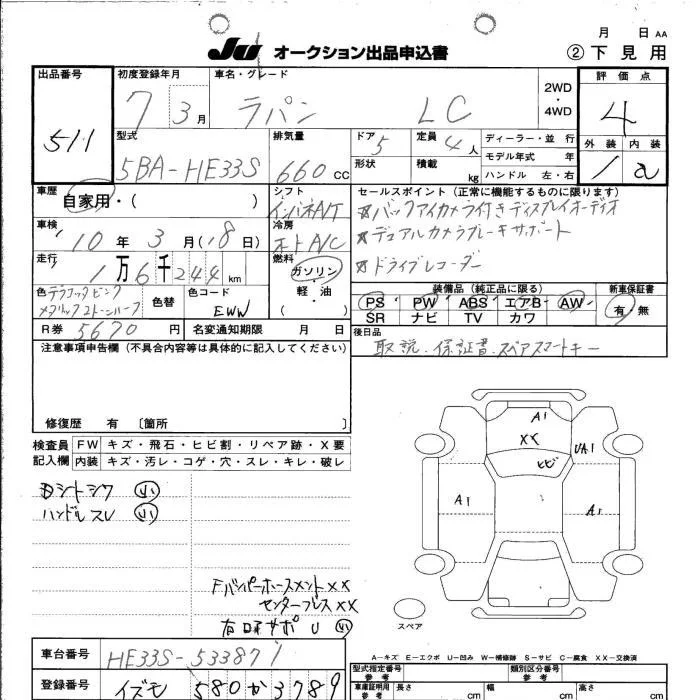 月 日 AA
JU オークション出品申込書 ②下見用
出品番号 初度登録年月 車名・グレード 2WD・4WD 評価点
511 7 3月 ラパン LC 4
型式 排気量 ドア 定員 ディーラー・並行 外装 内装
5BA-HE33S 660 CC 5 4人 モデル年式 年 1 a
形状 積載 kg ハンドル 左・右
車歴 自家用・( ) シフト インパネA/T セールスポイント(正常に機能するものに限ります)
☆バックアイカメラ付きディスプレイオーディオ
車検 10年3月(18日) 冷房 オートA/C ☆デュアルカメラブレーキサポート
走行 1万6千244km 燃料 ガソリン・軽・油( ) ☆ドライブレコーダー
色 テラコッタピンクメタリック2トーンルーフ 色替 色コード EWW 装備品(純正品に限る) 新車保証書
PS PW ABS エアB AW 有・無
SR ナビ TV カワ
R券 5670円 名変通知期限 月 日 後日品
取説・保証書・スペアスマートキー
注意事項申告欄(不具合内容等は具体的に記入してください)
修復歴 有 [箇所 ]
検査員記入欄 FW キズ・飛石・ヒビ割・リペア跡・X要
内装 キズ・汚レ・コゲ・穴・スレ・キレ・破レ
シートシワ 小
ハンドルスレ 小
A1
XX
ヒビ
UA1
A1
A1
FバンパーホースメントXX
センターフレスXX
右コアサポ U 小
スペア
A-キズ E-エクボ U-凹み W-補修跡 S-サビ C-腐食 XX-交換済
車台番号 HE33S-533871 型式指定番号 参考 類別区分番号 参考
登録番号 イズモ 580 か 3789 車庫証明用 参考 長さ cm 幅 cm 高さ cm